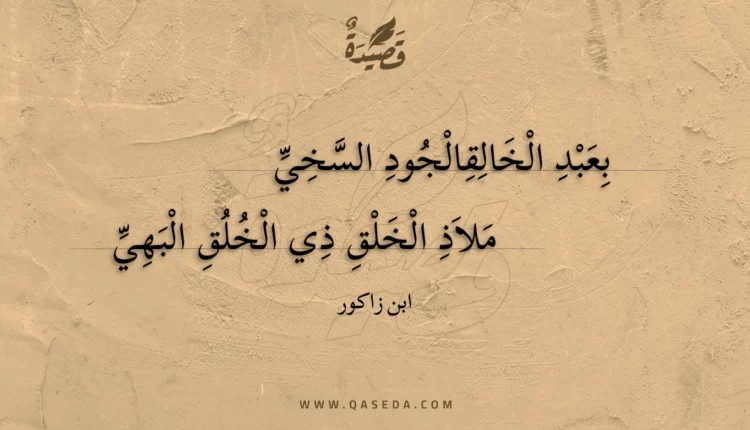 قَصِيْدَةٌ
بِعَبْدِ الْخَالِقِالْجُودِ السَّخِيِّ
مَلاَذِ الْخَلْقِ ذِي الْخُلُقِ الْبَهِيِّ
ابن زاكور
WWW.QASEDA.COM